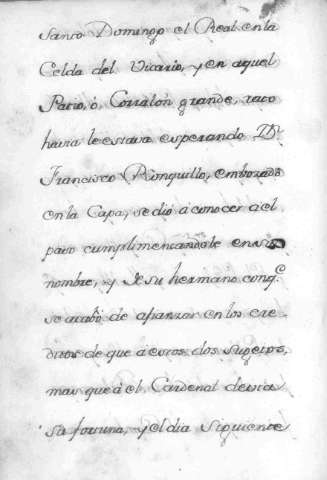 Santo Domingo el Real en la
Celda del Vicario, y en aquel
Patio, ó Corralon grande, rato
havia le estava esperando Dⁿ
Francisco Ronquillo, embozado
en la Capa, se dió á conocer á el
paso cumplimentandole en su
nombre, y de su hermano conq.ᵉ
se acabó de afianzar en los cre-
ditos de que á estos dos sugetos,
mas que á el Cardenal devia
su fortuna, y el dia siguiente